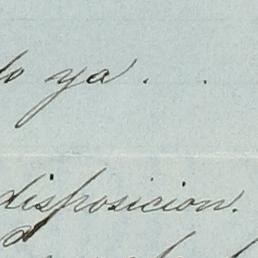 lo ya . .
disposicion.